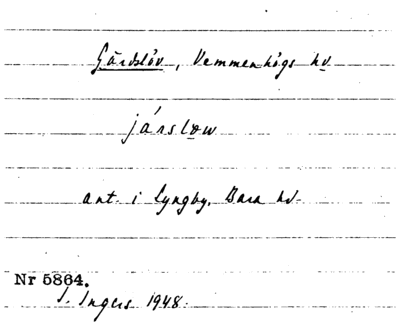 Gärdslöv, Vemmenhögs hd
järsløw
ant. i Lyngby, Bara hd.
Nr 5864.
I. Ingers 1948.